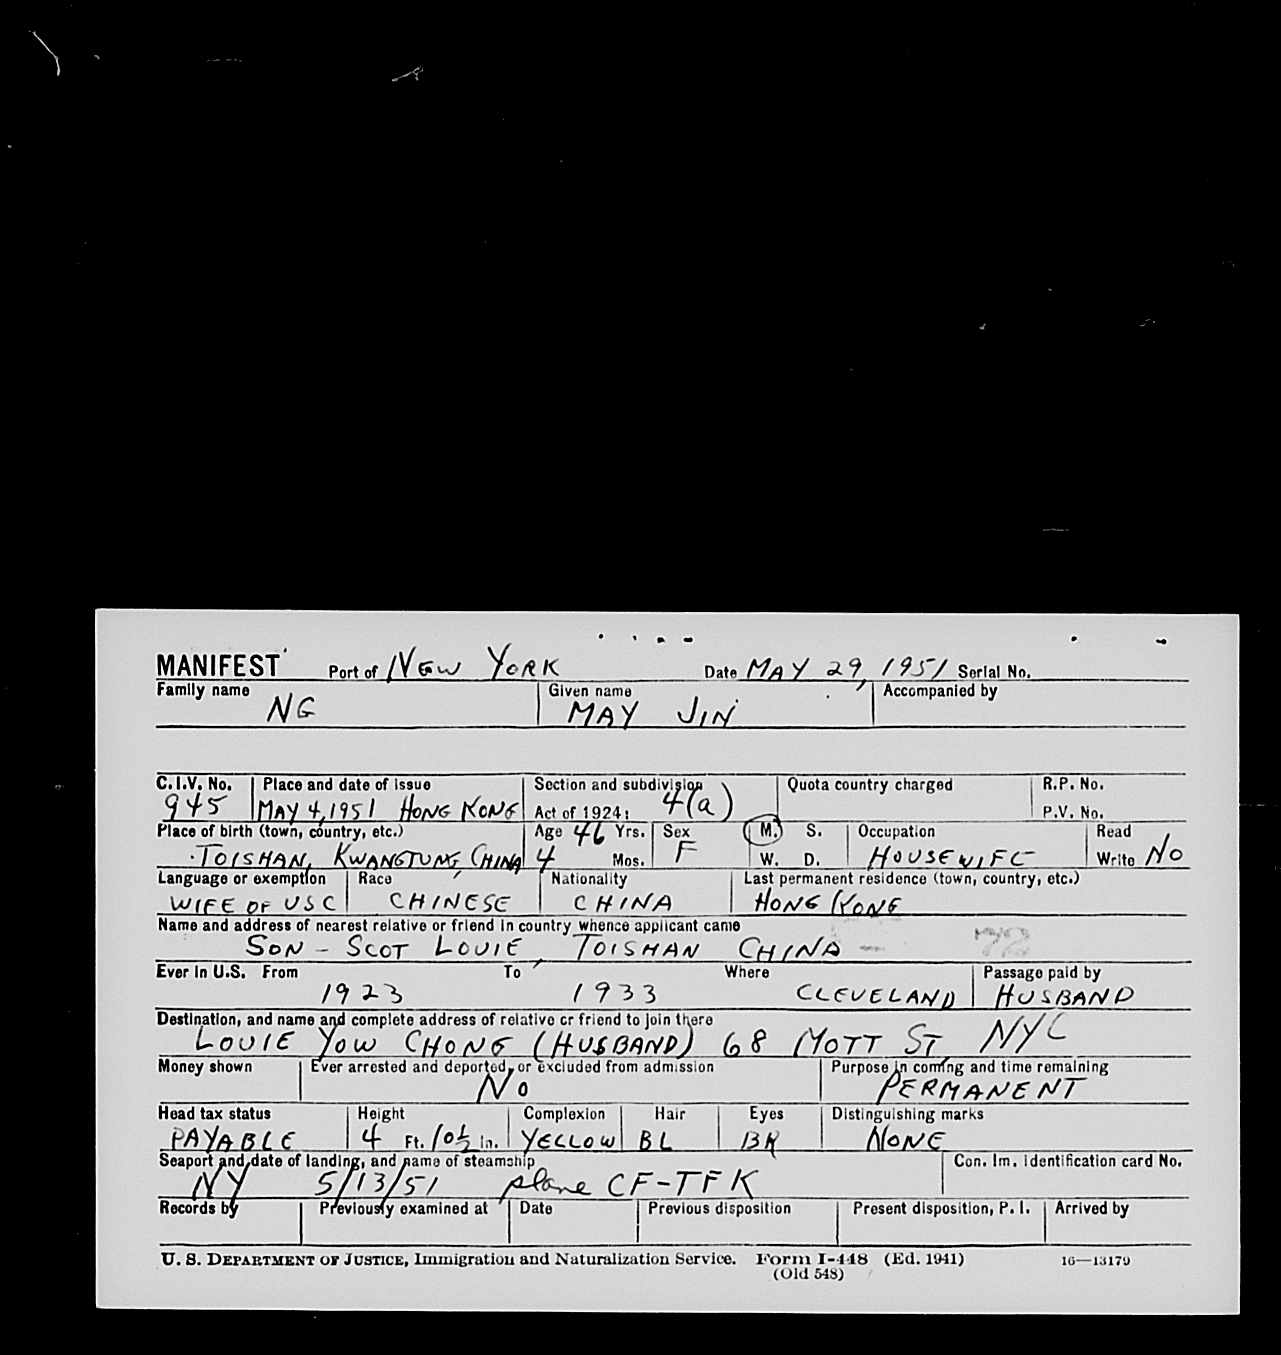 MANIFEST Port of NEW YORK Date MAY 29, 1951 Serial No.
Family name Given name Accompanied by
NG MAY JIN
C.I.V. No. Place and date of issue Section and subdivision Quota country charged R.P. No.
945 MAY 4, 1951 HONG KONG Act of 1924: 4(a) P.V. No.
Place of birth (town, country, etc.) Age 46 Yrs. Sex M. S. Occupation Read
TOISHAN, KWANGTUNG, CHINA 4 Mos. F W. D. HOUSEWIFE Write NO
Language or exemption Race Nationality Last permanent residence (town, country, etc.)
WIFE OF USC CHINESE CHINA HONG KONG
Name and address of nearest relative or friend in country whence applicant came
SON - SCOT LOUIE, TOISHAN CHINA - 72
Ever in U.S. From To Where Passage paid by
1923 1933 CLEVELAND HUSBAND
Destination, and name and complete address of relative or friend to join there
LOUIE YOW CHONG (HUSBAND) 68 MOTT ST, NYC
Money shown Ever arrested and deported, or excluded from admission Purpose in coming and time remaining
NO PERMANENT
Head tax status Height Complexion Hair Eyes Distinguishing marks
PAYABLE 4 Ft. 10½ In. YELLOW BL BR NONE
Seaport and date of landing, and name of steamship Con. Im. identification card No.
NY 5/13/51 plane CF-TFK
Records by Previously examined at Date Previous disposition Present disposition, P. I. Arrived by
U. S. DEPARTMENT OF JUSTICE, Immigration and Naturalization Service. Form I-448 (Ed. 1941) 16—13179
(Old 548)